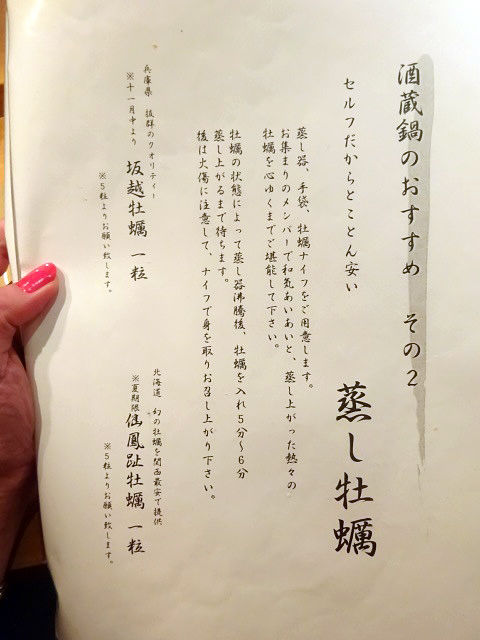 酒蔵鍋のおすすめ その2
セルフだからとことん安い 蒸し牡蠣
蒸し器、手袋、牡蠣ナイフをご用意します。
お集まりのメンバーで和気あいあいと、蒸し上がった熱々の
牡蠣を心ゆくまでご堪能して下さい。
牡蠣の状態によって蒸し器沸騰後、牡蠣を入れ5分〜6分
蒸し上がるまで待ちます。
後は火傷に注意して、ナイフで身を取りお召し上がり下さい。
兵庫県 抜群のクオリティー
※十一月中より 坂越牡蠣 一粒
※5粒よりお願い致します。
北海道 幻の牡蠣を関西最安で提供
※夏期限 仙鳳趾牡蠣 一粒
※5粒よりお願い致します。